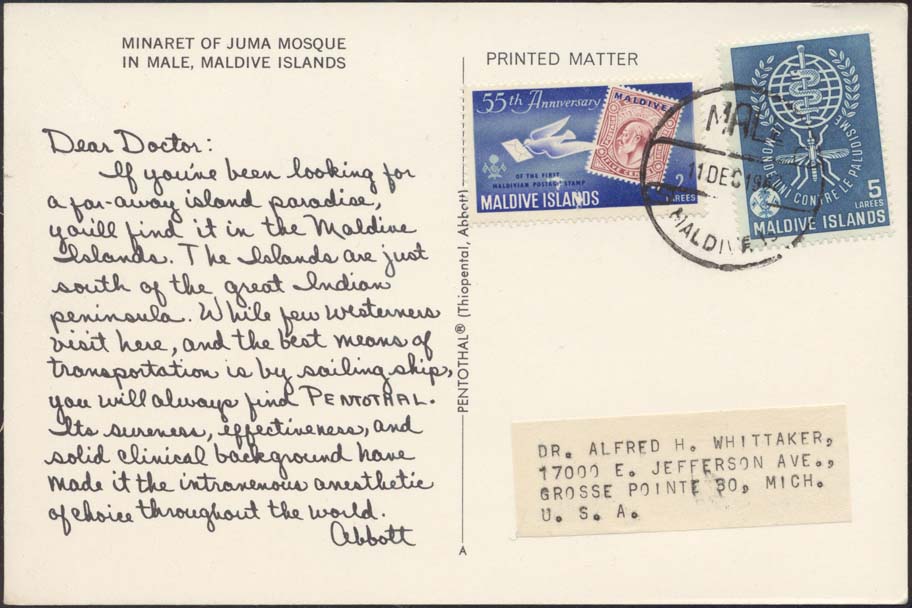 MINARET OF JUMA MOSQUE
IN MALE, MALDIVE ISLANDS
Dear Doctor:
If you've been looking for
a far-away island paradise,
you'll find it in the Maldive
Islands. The Islands are just
south of the great Indian
peninsula. While few Westerners
visit here, and the best means of
transportation is by sailing ship,
you will always find PENTOTHAL.
Its sureness, effectiveness, and
solid clinical background have
made it the intravenous anesthetic
of choice throughout the world.
Abbott
PENTOTHAL® (Thiopental, Abbott)
A
PRINTED MATTER
55th Anniversary
OF THE FIRST
MALDIVIAN POSTAGE STAMP
MALDIVE ISLANDS
2
LAREES
MALDIVE
5
LAREES
MALDIVE ISLANDS
CONTRE LE PALUDISME
11 DEC 196
MALDIVE
DR. ALFRED H. WHITTAKER,
17000 E. JEFFERSON AVE.,
GROSSE POINTE 30, MICH.
U. S. A.